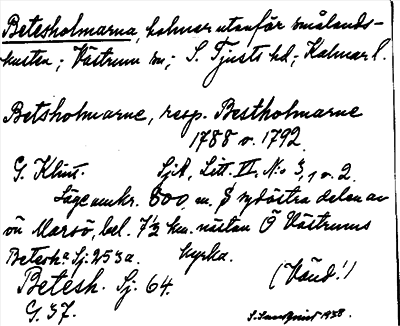 Betesholmarna, holmar utanför smålands-
kusten; Västrum sn; S. Tjusts hd; Kalmar l.
Betsholmarne, resp. Bestholmarne
1788 o. 1792.
G. Klint. Sjk, Litt. II. No 3, 1 o. 2.
Läge omkr. 800 m. S sydöstra delen av
ön Marsö, bel. 7½ km. nästan Ö Västrums
kyrka.
Betesh. Sj. 253 a.
Betesh. Sj. 64. (Vänd!)
G. 37. 1938.